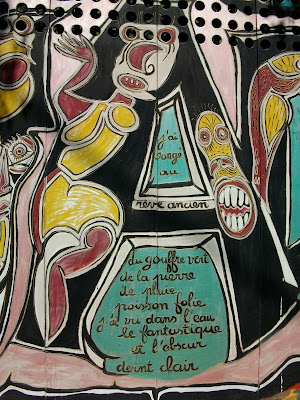 j'ai
songé
au
reve ancien
du gouffre vert
de la pierre
de pluie
poisson folie
j'ai vu dans l'eau
le fantastique
et l'obscur
devint clair